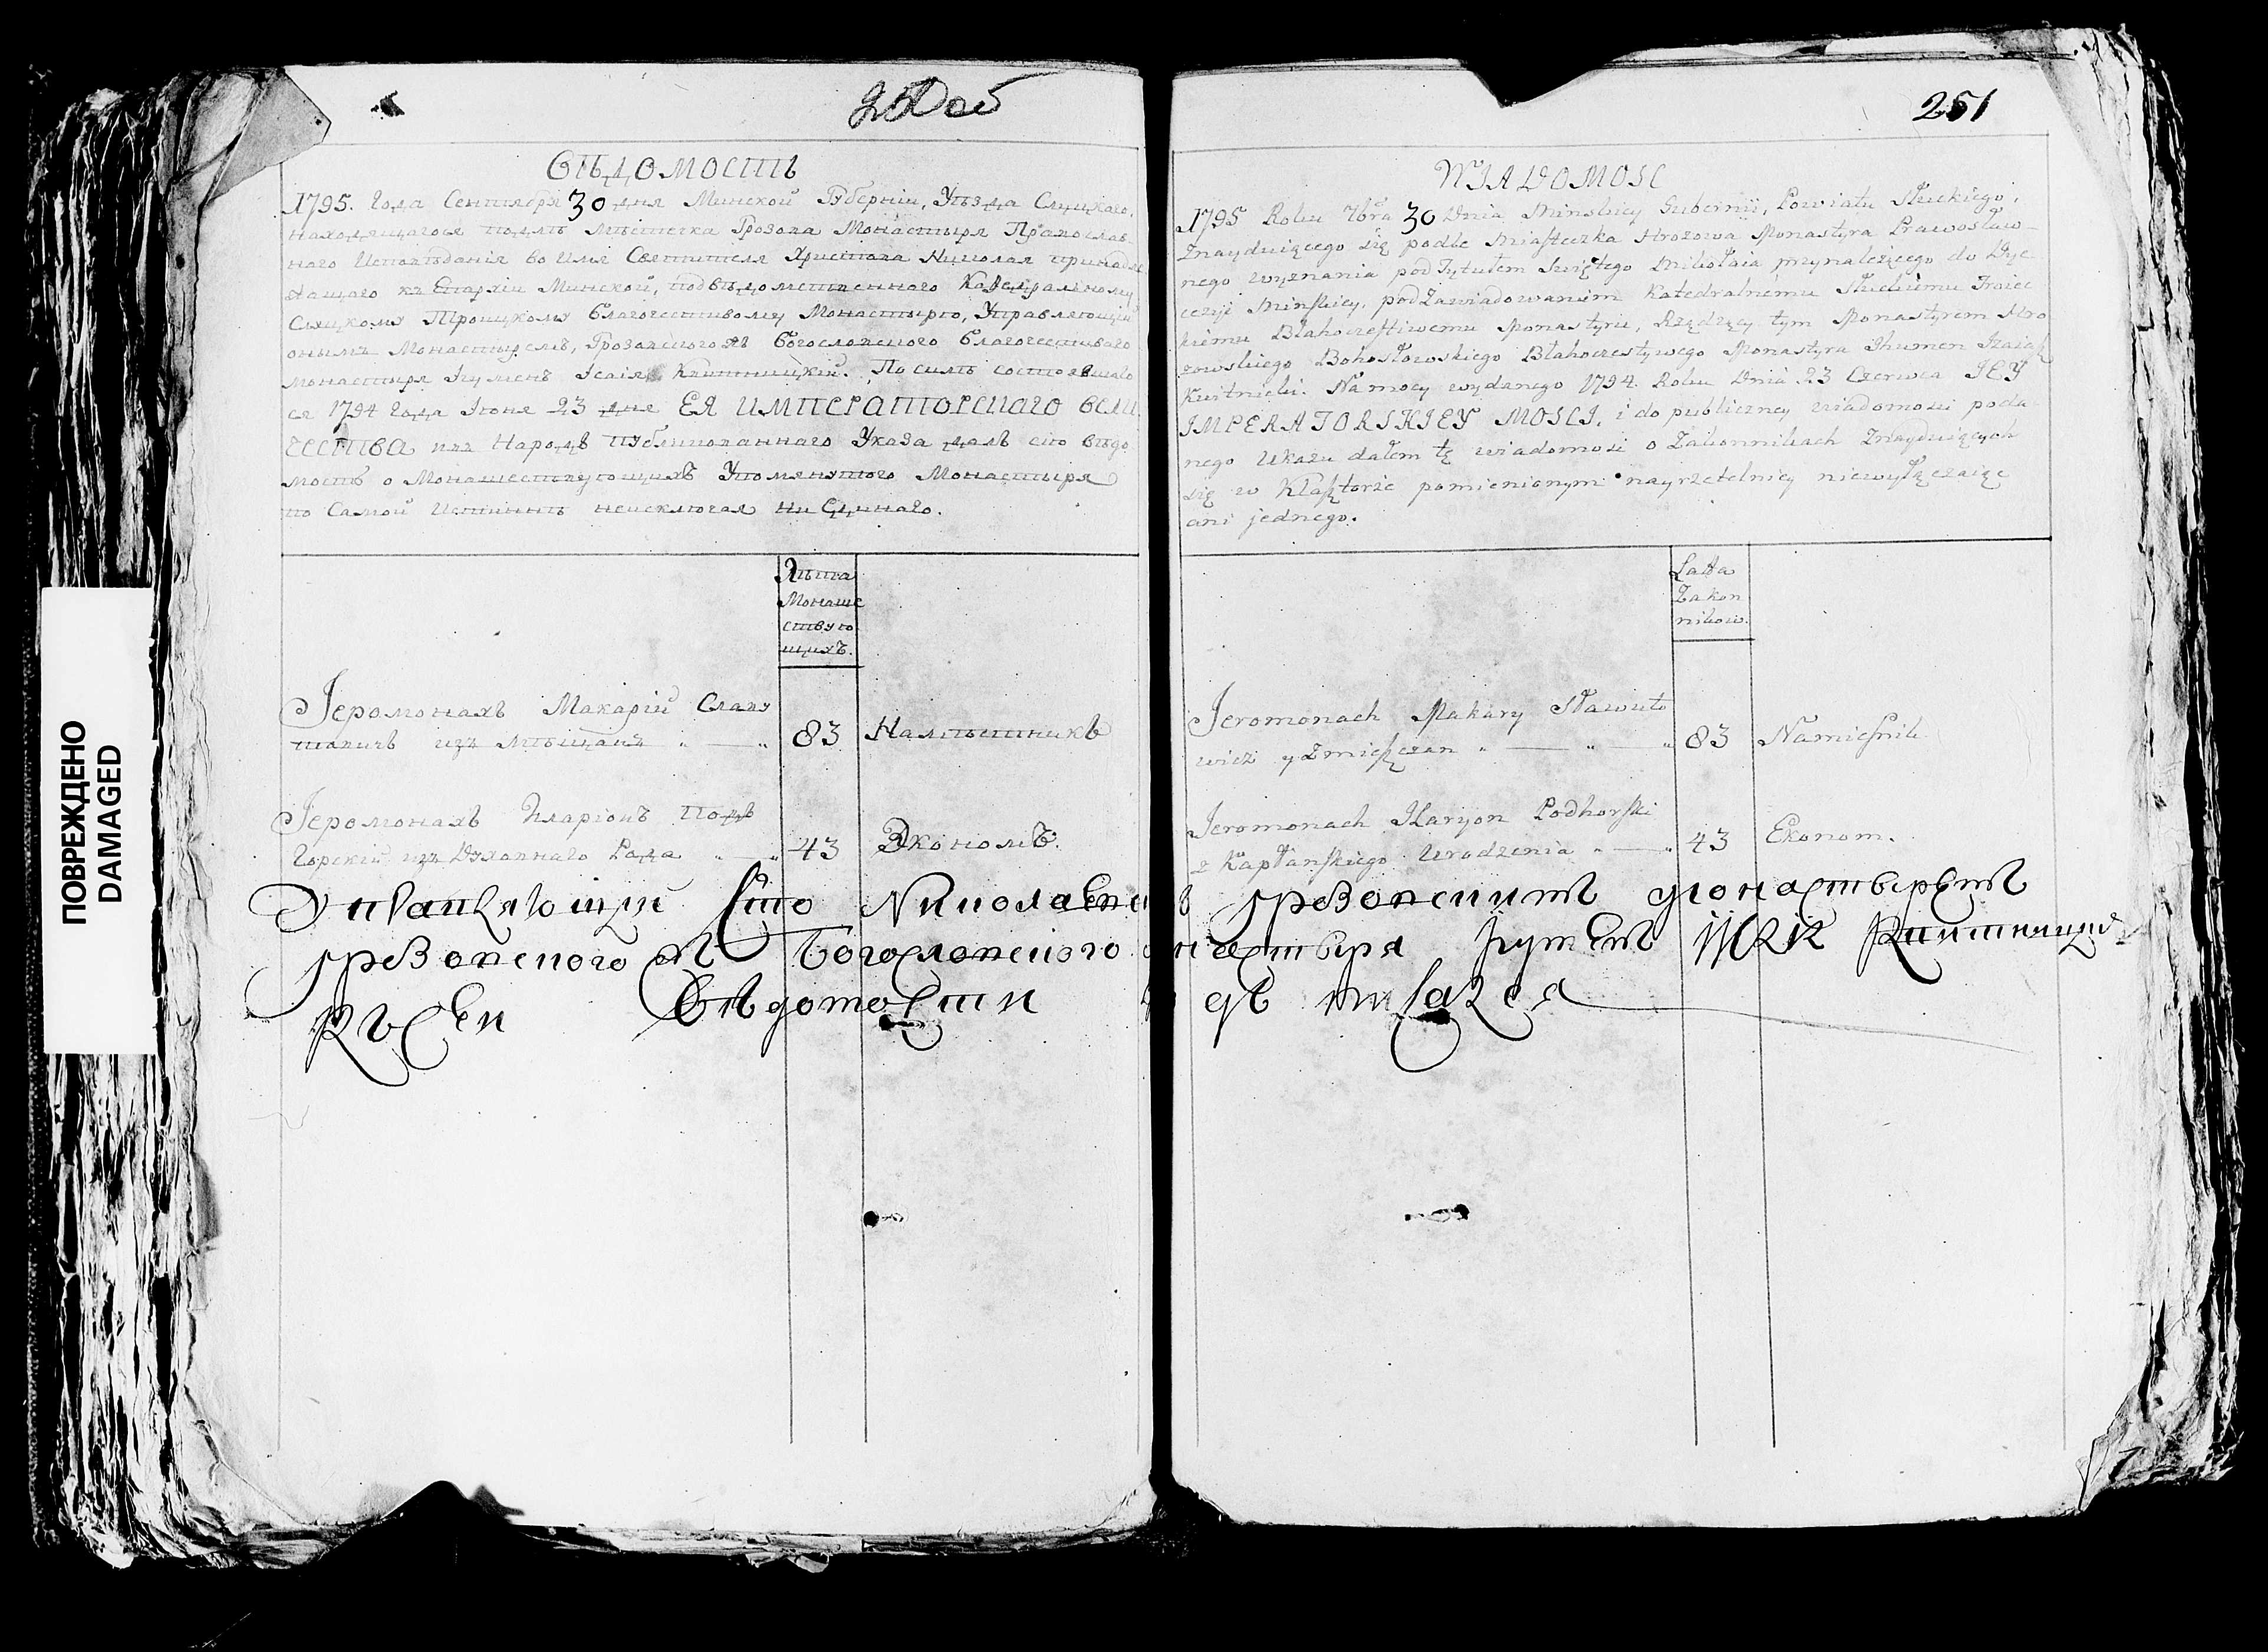 250 об
Вѣдомость
1795. Года Сентября 30 дня Минской Губерніи, Уѣзда Слуцкаго,
находящагося подлѣ Мѣстечка Грозова Монастыря Православ
наго Исповѣданія во имя Святителя Христова Николая принадле
жащого къ Епархіи Минской, подвѣдомственного Кафедральному
Слуцкому Троицкому Благочестивому Монастырю, Управляющий
онымъ Монастыремъ, Грозовского жъ Богословского Благочестивого
монастыря Ігуменъ Ісаія Квитницкій. По силѣ состоявшаго
ся 1794 Года Іюня 23 дня ЕЯ ИМПЕРАТОРСКАГО ВЕЛИ
ЧЕСТВА въ Народъ публикованнаго Указа далъ сію вѣдо
мость о Монашествующихъ Упомянутого Монастыря
по Самой Истиннѣ неисключая ни Единаго.
Лѣта
Монаше
ствую
щихъ.
Іеромонахъ Макарій Славу
товичъ изъ мѣщанъ „ — „ 83 Намѣстникъ
Іеромонахъ Иларіонъ Подъ
горскій изъ Духовнаго Рода „ — „ 43 Экономъ.
251
WIADOMOSC
1795 Roku 7bra 30 Dnia Minskiey Gubernii, Powiatu Słuckiego,
Znayduiącego się podle Miasteczka Hrozowa Monastyra Prawosław
nego wyznania pod Tytułem Swiętego Mikołaia przynalezącego do Dye
cezyi Minskiey, pod Zawiadowaniem Katedralnemu Słuckiemu Troiec
kiemu Błahoczestiwemu Monastyru, Rządzący tym Monastyrem Hro
zowskiego Bohosłowskiego Błahoczestywego Monastyra Ihumen Izaiasz
Kwitnicki. Na mocy wydanego 1794. Roku Dnia 23 Czerwca JEY
IMPERATORSKIEY MOSCI, i do publiczney wiadomosci poda
nego Ukazu dałem tę wiadomosc o Zakonnikach Znayduiących
się w Klasztorze pomienionym nayrzetelniey niewyłączaiąc
ani jednego.
Latta
Zakon
nikow.
Jeromonach Makary Sławuto
wicz z mieszczan „ — „ — „ 83 Namiesnik
Jeromonach Ilaryon Podhorski
z Kapłanskiego Urodzenia „ — „ 43 Ekonom.
Управляющій Свято Николаевским Грозовскимъ монастыремъ
Грозовского жъ Богословского монастыря Ігуменъ Ісаія Квитницкій
к сей Вѣдомости подписался
ПОВРЕЖДЕНО
DAMAGED